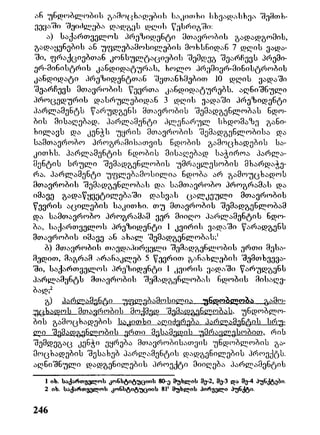 ან უნდობლობის გამოცხადების საკითხი სხვადასხვა შემთხ-
ვევაში შეიძლება დადგეს დღის წესრიგში:
ა) საქართველოს პრეზიდენტი მთავრობის გადადგომის,
გადაყენების ან უფლებამოსილების მოხსნიდან 7 დღის ვადა-
ში, ფრაქციებთან კონსულტაციების შემდეგ შეარჩევს პრემი-
ერ-მინისტრის კანდიდატურას, ხოლო პრემიერ-მინისტრობის
კანდიდატი პრეზიდენტთან შეთანხმებით 10 დღის ვადაში
შეარჩევს მთავრობის წევრთა კანდიდატურებს. აღნიშნული
პროცედურის დასრულებიდან 3 დღის ვადაში პრეზიდენტი
პარლამენტს წარუდგენს მთავრობის შემადგენლობას ნდო-
ბის მისაღებად. პარლამენტი პლენარულ სხდომაზე განი-
ხილავს და კენჭს უყრის მთავრობის შემადგენლობისა და
სამთავრობო პროგრამისათვის ნდობის გამოცხადების სა-
კითხს. პარლამენტის ნდობის მისაღებად საჭიროა პარლა-
მენტის სრული შემადგენლობის უმრავლესობის მხარდაჭე-
რა. პარლამენტი უფლებამოსილია ნდობა არ გამოუცხადოს
მთავრობის შემადგენლობას და სამთავრობო პროგრამას და
იმავე გადაწყვეტილებაში დასვას ცალკეული მთავრობის
წევრის აცილების საკითხი. თუ მთავრობის შემადგენლობამ
და სამთავრობო პროგრამამ ვერ მიიღო პარლამენტის ნდო-
ბა, საქართველოს პრეზიდენტი 1 კვირის ვადაში წარადგენს
მთავრობის იმავე ან ახალ შემადგენლობას;¹
ბ) მთავრობის თავდაპირველი შემადგენლობის ერთი მესა-
მედით, მაგრამ არანაკლებ 5 წევრით განახლების შემთხვევა-
ში, საქართველოს პრეზიდენტი 1 კვირის ვადაში წარუდგენს
პარლამენტს მთავრობის შემადგენლობას ნდობის მისაღე-
ბად;²
გ) პარლამენტი უფლებამოსილია უნდობლობა გამო-
უცხადოს მთავრობის მოქმედ შემადგენლობას. უნდობლო-
ბის გამოცხადების საკითხი აღიძვრება პარლამენტის სრუ-
ლი შემადგენლობის ერთი მესამედის უმრავლესობით, რის
შემდეგაც კენჭი ეყრება მთავრობისათვის უნდობლობის გა-
მოცხადების შესახებ პარლამენტის დადგენილების პროექტს.
აღნიშნული დადგენილების პროექტი მიიღება პარლამენტის
1 იხ. საქართველოს კონსტიტუციის 80-ე მუხლის მე-2, მე-3 და მე-4 პუნქტები.
2 იხ. საქართველოს კონსტიტუციის 81¹ მუხლის პირველი პუნქტი.
246